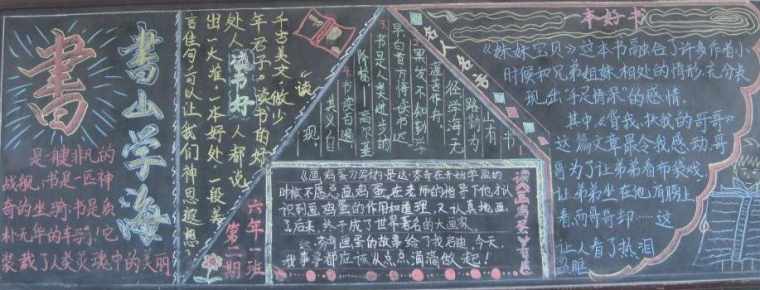 書
書山学海
是一艘非凡的
战舰,书是一匹神
奇的坐骑,书是质
朴无华的车骑!它
装载了人类灵魂中的美丽
"读"
千古美文,做少
年君子。读书的好
处人
读书好
人都说
出一大堆,一本好处,一段美
言佳句,可以让我们神思遐想!
六年二班
第一期
名人名言
书山有
路勤为
径,学海无
涯苦作舟。
黑发不知勤学
早,白首方悔读书迟
3.书是人类进步的
阶梯。高尔基
书读百遍
其义自
现。
《画鸡蛋》写的是达·芬奇在开始学画的
时候不愿意画鸡蛋,在老师的指导下他才认
识到画鸡蛋的作用和道理,又认真地画
了后来,终于成了世界著名的大画家。
画蛋的故事给了我启迪,今天,
我事事都应该从点点滴滴做起!
一本好书
《妹妹宝贝》这本书融台了许多作者小
时候和兄弟姐妹相处的情形,充分表
现出"手足情深"的感情。
其中《背我、扶我的哥哥》
这篇文章最令我感动,哥
哥为了让弟弟看布袋戏
让弟弟坐在他肩膀上
看,而哥哥却……这
让人看了热泪
盈眶